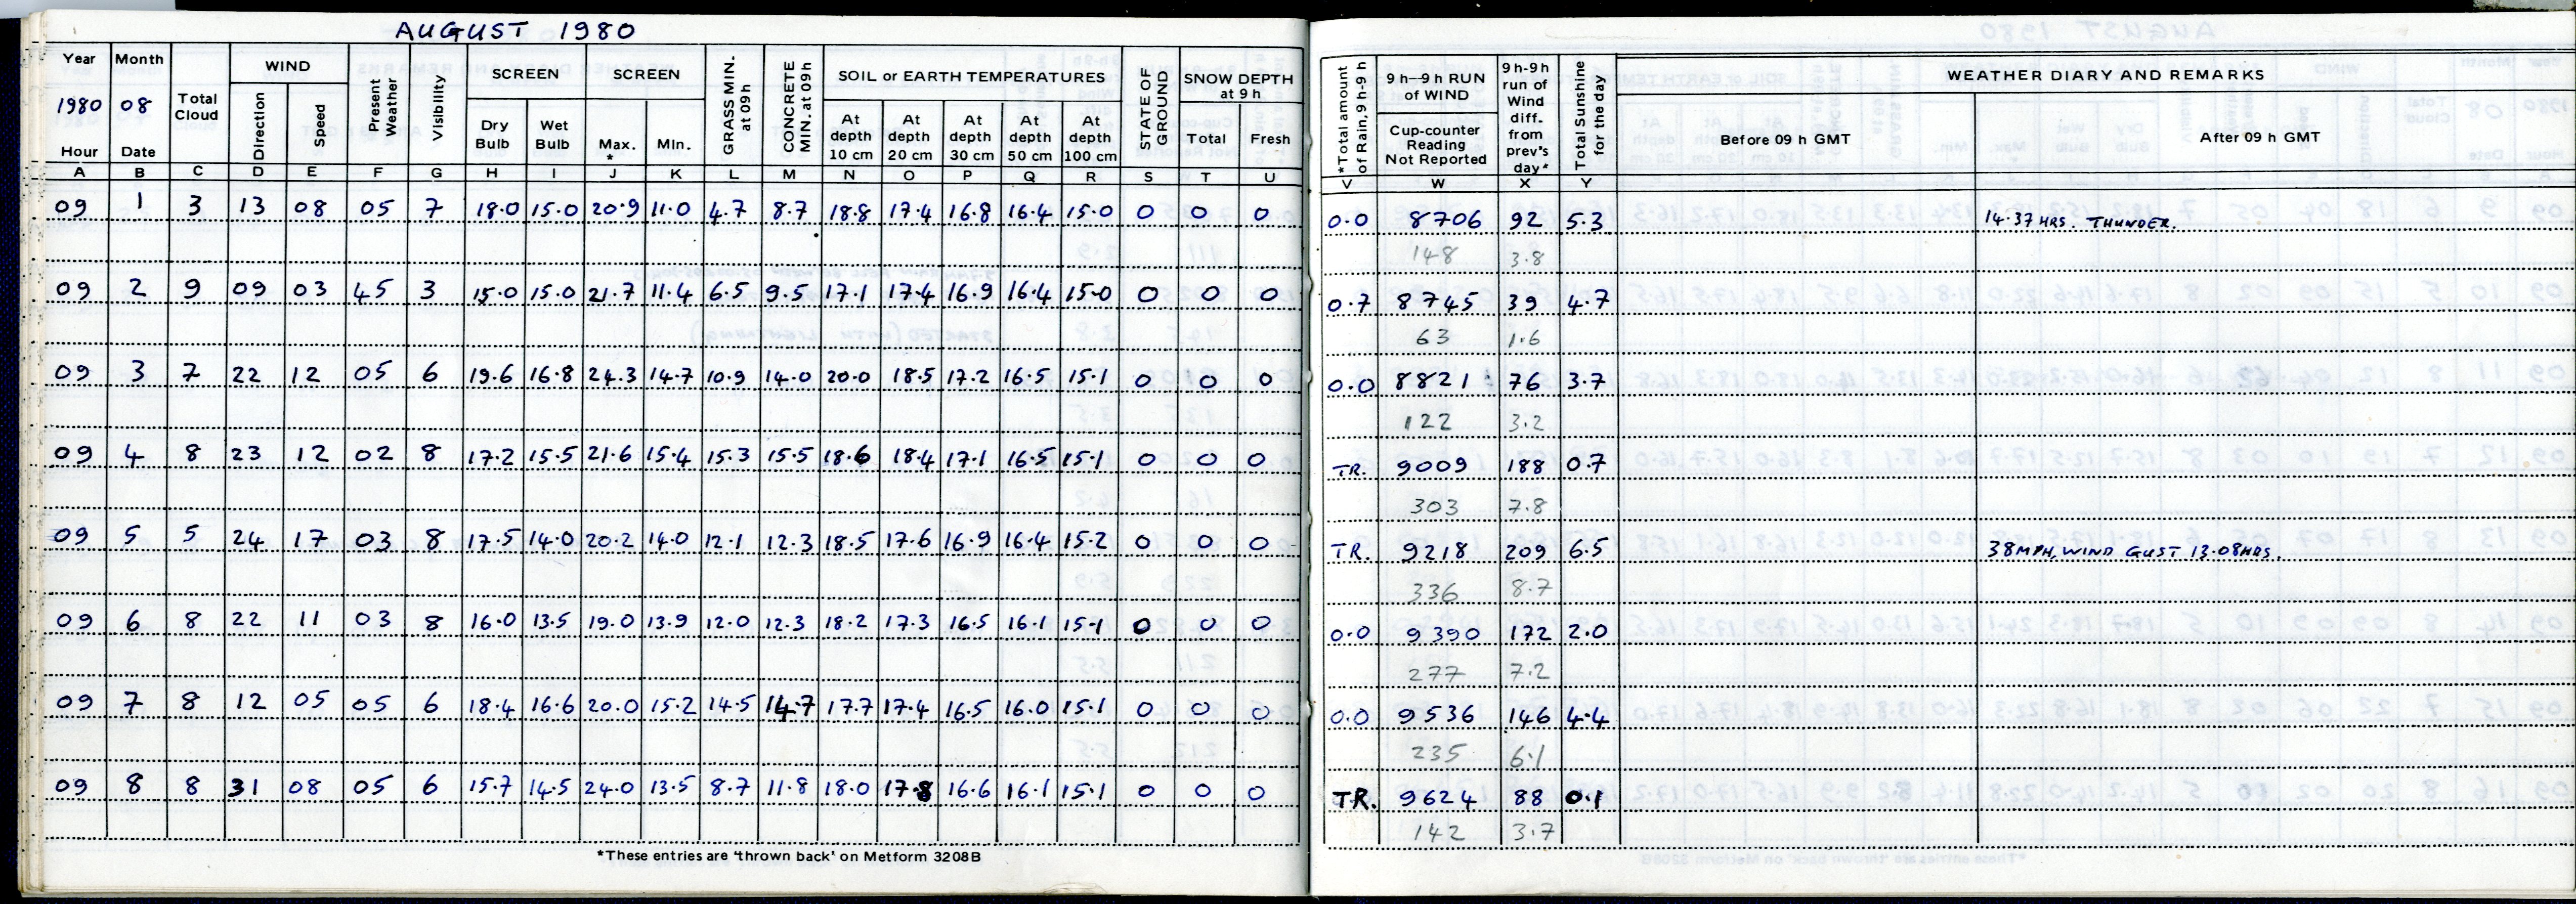 AUGUST 1980
Year Month Total Cloud WIND Present Weather Visibility SCREEN SCREEN GRASS MIN. at 09h CONCRETE MIN. at 09h SOIL or EARTH TEMPERATURES STATE OF GROUND SNOW DEPTH at 9 h
1980 08 Direction Speed Dry Bulb Wet Bulb Max. * Min. At depth 10 cm At depth 20 cm At depth 30 cm At depth 50 cm At depth 100 cm Total Fresh
Hour Date
A B C D E F G H I J K L M N O P Q R S T U
09 1 3 13 08 05 7 18.0 15.0 20.9 11.0 4.7 8.7 18.8 17.4 16.8 16.4 15.0 0 0 0
09 2 9 09 03 45 3 15.0 15.0 21.7 11.4 6.5 9.5 17.1 17.4 16.9 16.4 15.0 0 0 0
09 3 7 22 12 05 6 19.6 16.8 24.3 14.7 10.9 14.0 20.0 18.5 17.2 16.5 15.1 0 0 0
09 4 8 23 12 02 8 17.2 15.5 21.6 15.4 15.3 15.5 18.6 18.4 17.1 16.5 15.1 0 0 0
09 5 5 24 17 03 8 17.5 14.0 20.2 14.0 12.1 12.3 18.5 17.6 16.9 16.4 15.2 0 0 0
09 6 8 22 11 03 8 16.0 13.5 19.0 13.9 12.0 12.3 18.2 17.3 16.5 16.1 15.1 0 0 0
09 7 8 12 05 05 6 18.4 16.6 20.0 15.2 14.5 14.7 17.7 17.4 16.5 16.0 15.1 0 0 0
09 8 8 31 08 05 6 15.7 14.5 24.0 13.5 8.7 11.8 18.0 17.8 16.6 16.1 15.1 0 0 0
*These entries are 'thrown back' on Metform 3208B
*Total amount of Rain, 9h-9h 9h–9h RUN of WIND 9h-9h run of Wind diff. from prev's day* Total Sunshine for the day WEATHER DIARY AND REMARKS
Cup-counter Reading Not Reported Before 09 h GMT After 09 h GMT
V W X Y
0.0 8706 92 5.3 14.37 HRS. THUNDER.
148 3.8
0.7 8745 39 4.7
63 1.6
0.0 8821 76 3.7
122 3.2
TR. 9009 188 0.7
303 7.8
TR. 9218 209 6.5 38MPH, WIND GUST 13.08HRS.
336 8.7
0.0 9390 172 2.0
277 7.2
0.0 9536 146 4.4
235 6.1
TR. 9624 88 0.1
142 3.7